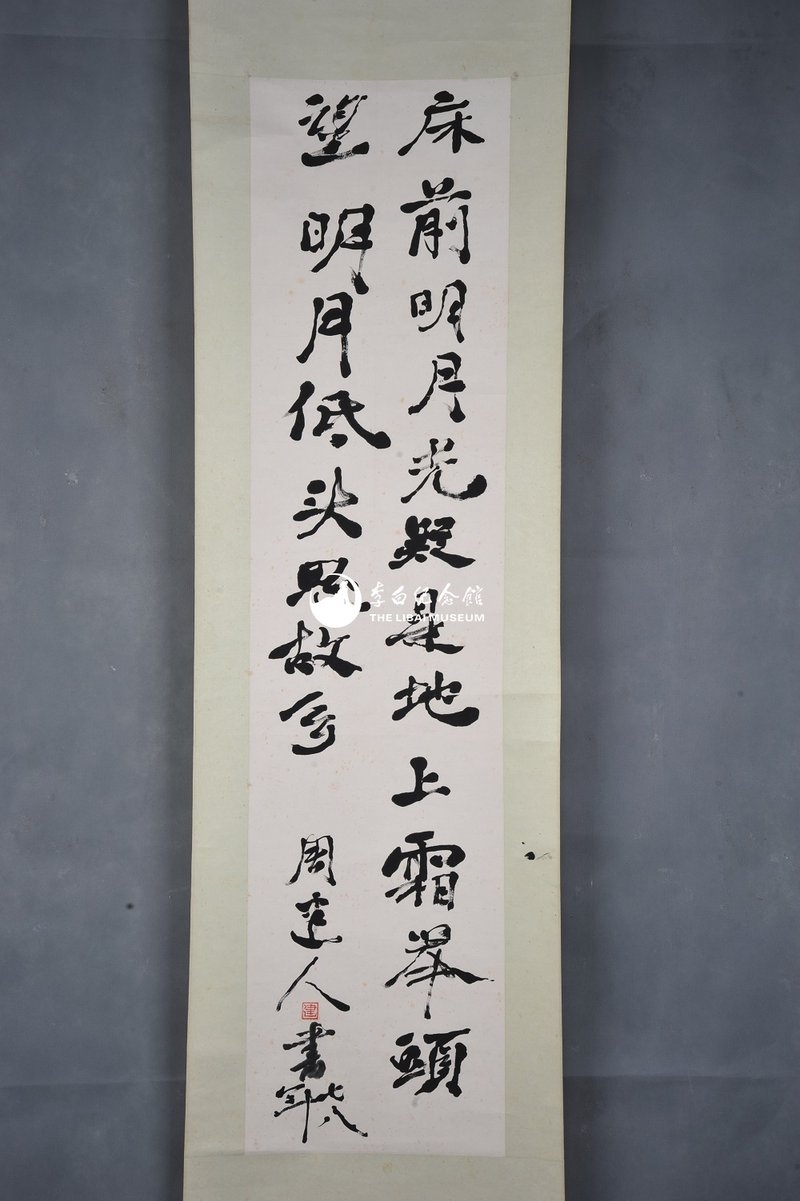 床前明月光疑是地上霜举頭
望明月低头思故乡
周建人
建
書
七八年
李白纪念館
THE LIBAI MUSEUM